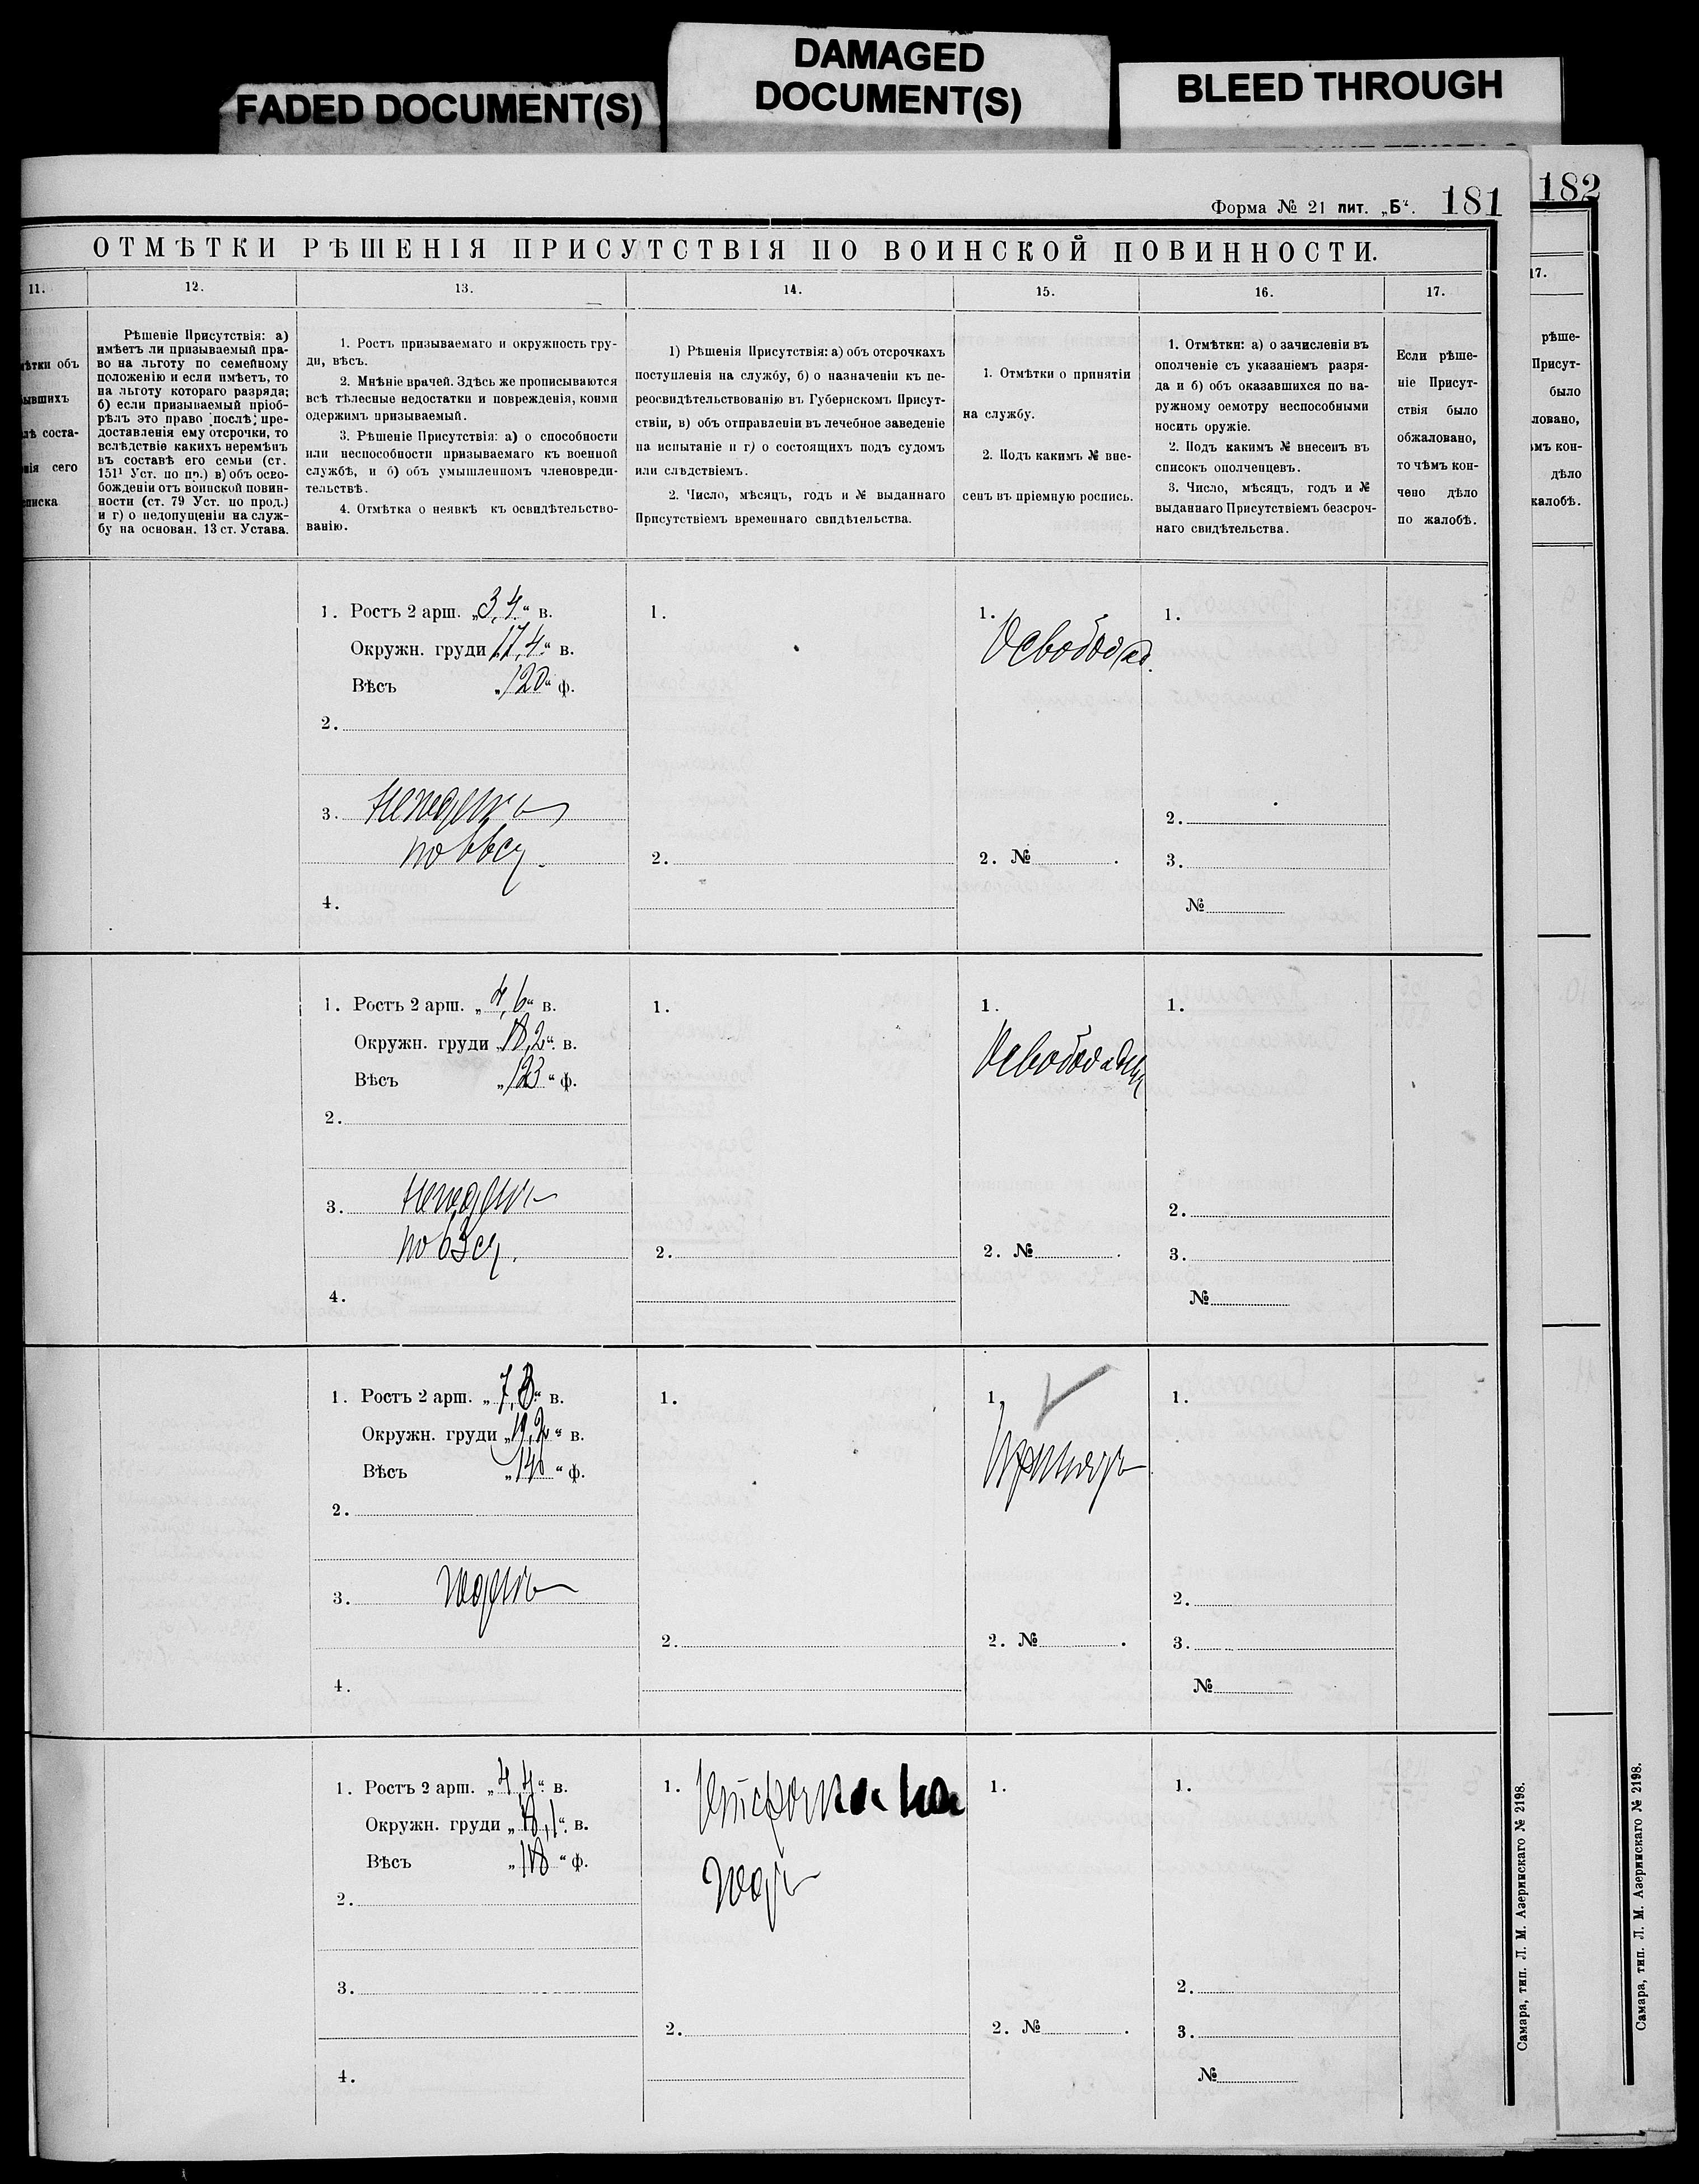 FADED DOCUMENT(S)
DAMAGED
DOCUMENT(S)
BLEED THROUGH
Форма № 21 лит. „Б“. 181
182
ОТМѢТКИ РѢШЕНІЯ ПРИСУТСТВІЯ ПО ВОИНСКОЙ ПОВИННОСТИ.
11. 12. 13. 14. 15. 16. 17.
17.
ѣтки объ
ывшихъ
лѣ соста-
нія сего
списка
Рѣшеніе Присутствія: а)
имѣетъ ли призываемый пра-
во на льготу по семейному
положенію и если имѣетъ, то
на льготу котораго разряда;
б) если призываемый пріоб-
рѣлъ это право послѣ пре-
доставленія ему отсрочки, то
вслѣдствіе какихъ перемѣнъ
въ составѣ его семьи (ст.
151¹ Уст. по пр.) в) объ осво-
божденіи отъ воинской повин-
ности (ст. 79 Уст. по прод.)
и г) о недопущеніи на служ-
бу на основан. 13 ст. Устава.
1. Ростъ призываемаго и окружность гру-
ди, вѣсъ.
2. Мнѣніе врачей. Здѣсь же прописываются
всѣ тѣлесные недостатки и поврежденія, коими
одержимъ призываемый.
3. Рѣшеніе Присутствія: а) о способности
или неспособности призываемаго къ военной
службѣ, и б) объ умышленномъ членовреди-
тельствѣ.
4. Отмѣтка о неявкѣ къ освидѣтельство-
ванію.
1) Рѣшенія Присутствія: а) объ отсрочкахъ
поступленія на службу, б) о назначеніи къ пе-
реосвидѣтельствованію въ Губернскомъ Присут-
ствіи, в) объ отправленіи въ лечебное заведеніе
на испытаніе и г) о состоящихъ подъ судомъ
или слѣдствіемъ.
2. Число, мѣсяцъ, годъ и № выданнаго
Присутствіемъ временнаго свидѣтельства.
1. Отмѣтки о принятіи
на службу.
2. Подъ какимъ № вне-
сенъ въ пріемную роспись.
1. Отмѣтки: а) о зачисленіи въ
ополченіе съ указаніемъ разря-
да и б) объ оказавшихся по на-
ружному осмотру неспособными
носить оружіе.
2. Подъ какимъ № внесенъ въ
списокъ ополченцевъ.
3. Число, мѣсяцъ, годъ и №
выданнаго Присутствіемъ безсроч-
наго свидѣтельства.
Если рѣше-
ніе Присут-
ствія было
обжаловано,
то чѣмъ кон-
чено дѣло
по жалобѣ.
рѣше-
Присут-
было
ловано,
ѣмъ кон-
дѣло
жалобѣ.
1. Ростъ 2 арш. „3,4“ в. 1. 1. 1.
Окружн. груди 17,4“ в.
Вѣсъ „120“ ф.
2.
3. 2.
2. 2. № . 3.
4. №
1. Ростъ 2 арш. „4,6“ в. 1. 1. 1.
Окружн. груди „18,2“ в.
Вѣсъ „123“ ф.
2.
3. 2.
2. 2. № . 3.
4. №
1. Ростъ 2 арш. „7, “ в. 1. 1. 1.
Окружн. груди „19,2“ в.
Вѣсъ „ “ ф.
2.
3. годенъ 2.
2. 2. № . 3.
4. №
1. Ростъ 2 арш. „4,4“ в. 1. 1. 1.
Окружн. груди „18,1“ в.
Вѣсъ „118“ ф.
2.
3. 2.
2. 2. № . 3.
4. №
Самара, тип. Л. М. Азеринскаго № 2198.
Самара, тип. Л. М. Азеринскаго № 2198.